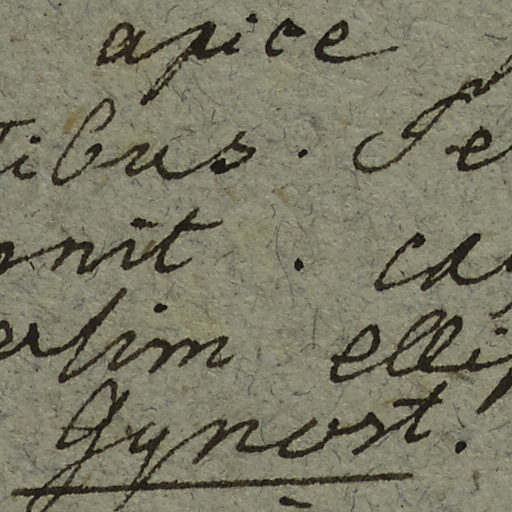 apice
tibus. Se
nnit. ca
ersim ellip
Gynost.